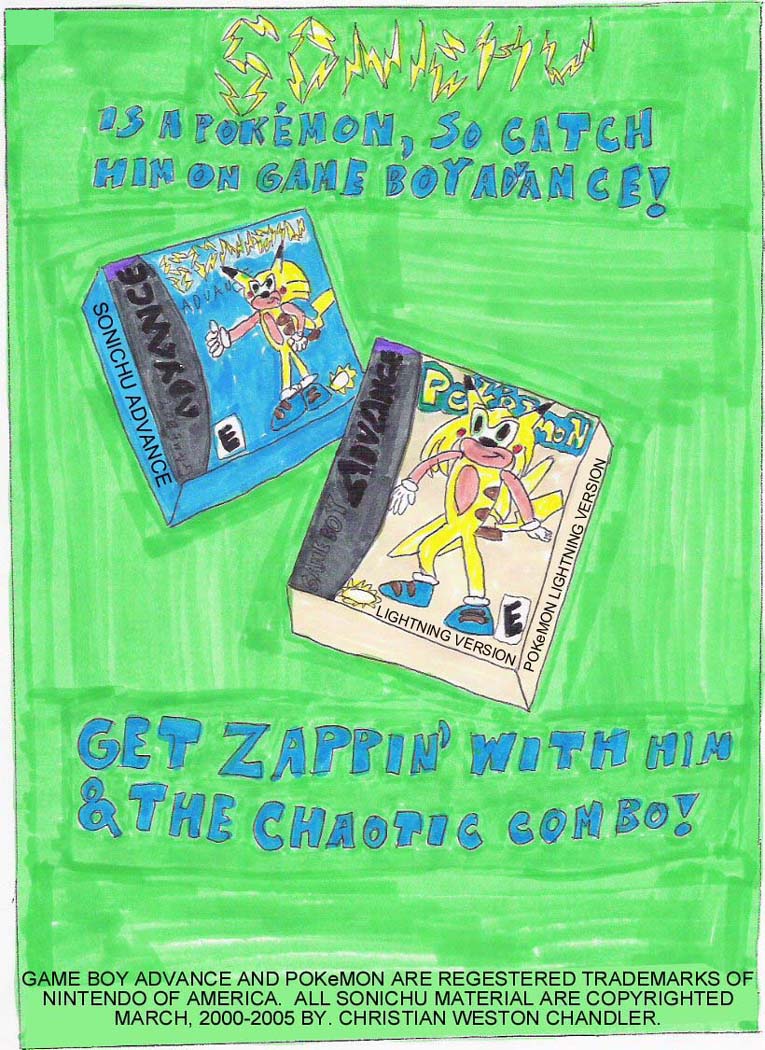 SONICHU
IS A POKÉMON, SO CATCH
HIM ON GAME BOY ADVANCE!
SONICHU
ADVANCE
ADVANCE
E
SONICHU ADVANCE
GAME BOY ADVANCE
POKéMON
E
LIGHTNING VERSION
POKeMON LIGHTNING VERSION
GET ZAPPIN' WITH HIM
& THE CHAOTIC COMBO!
GAME BOY ADVANCE AND POKeMON ARE REGESTERED TRADEMARKS OF
NINTENDO OF AMERICA.  ALL SONICHU MATERIAL ARE COPYRIGHTED
MARCH, 2000-2005 BY. CHRISTIAN WESTON CHANDLER.